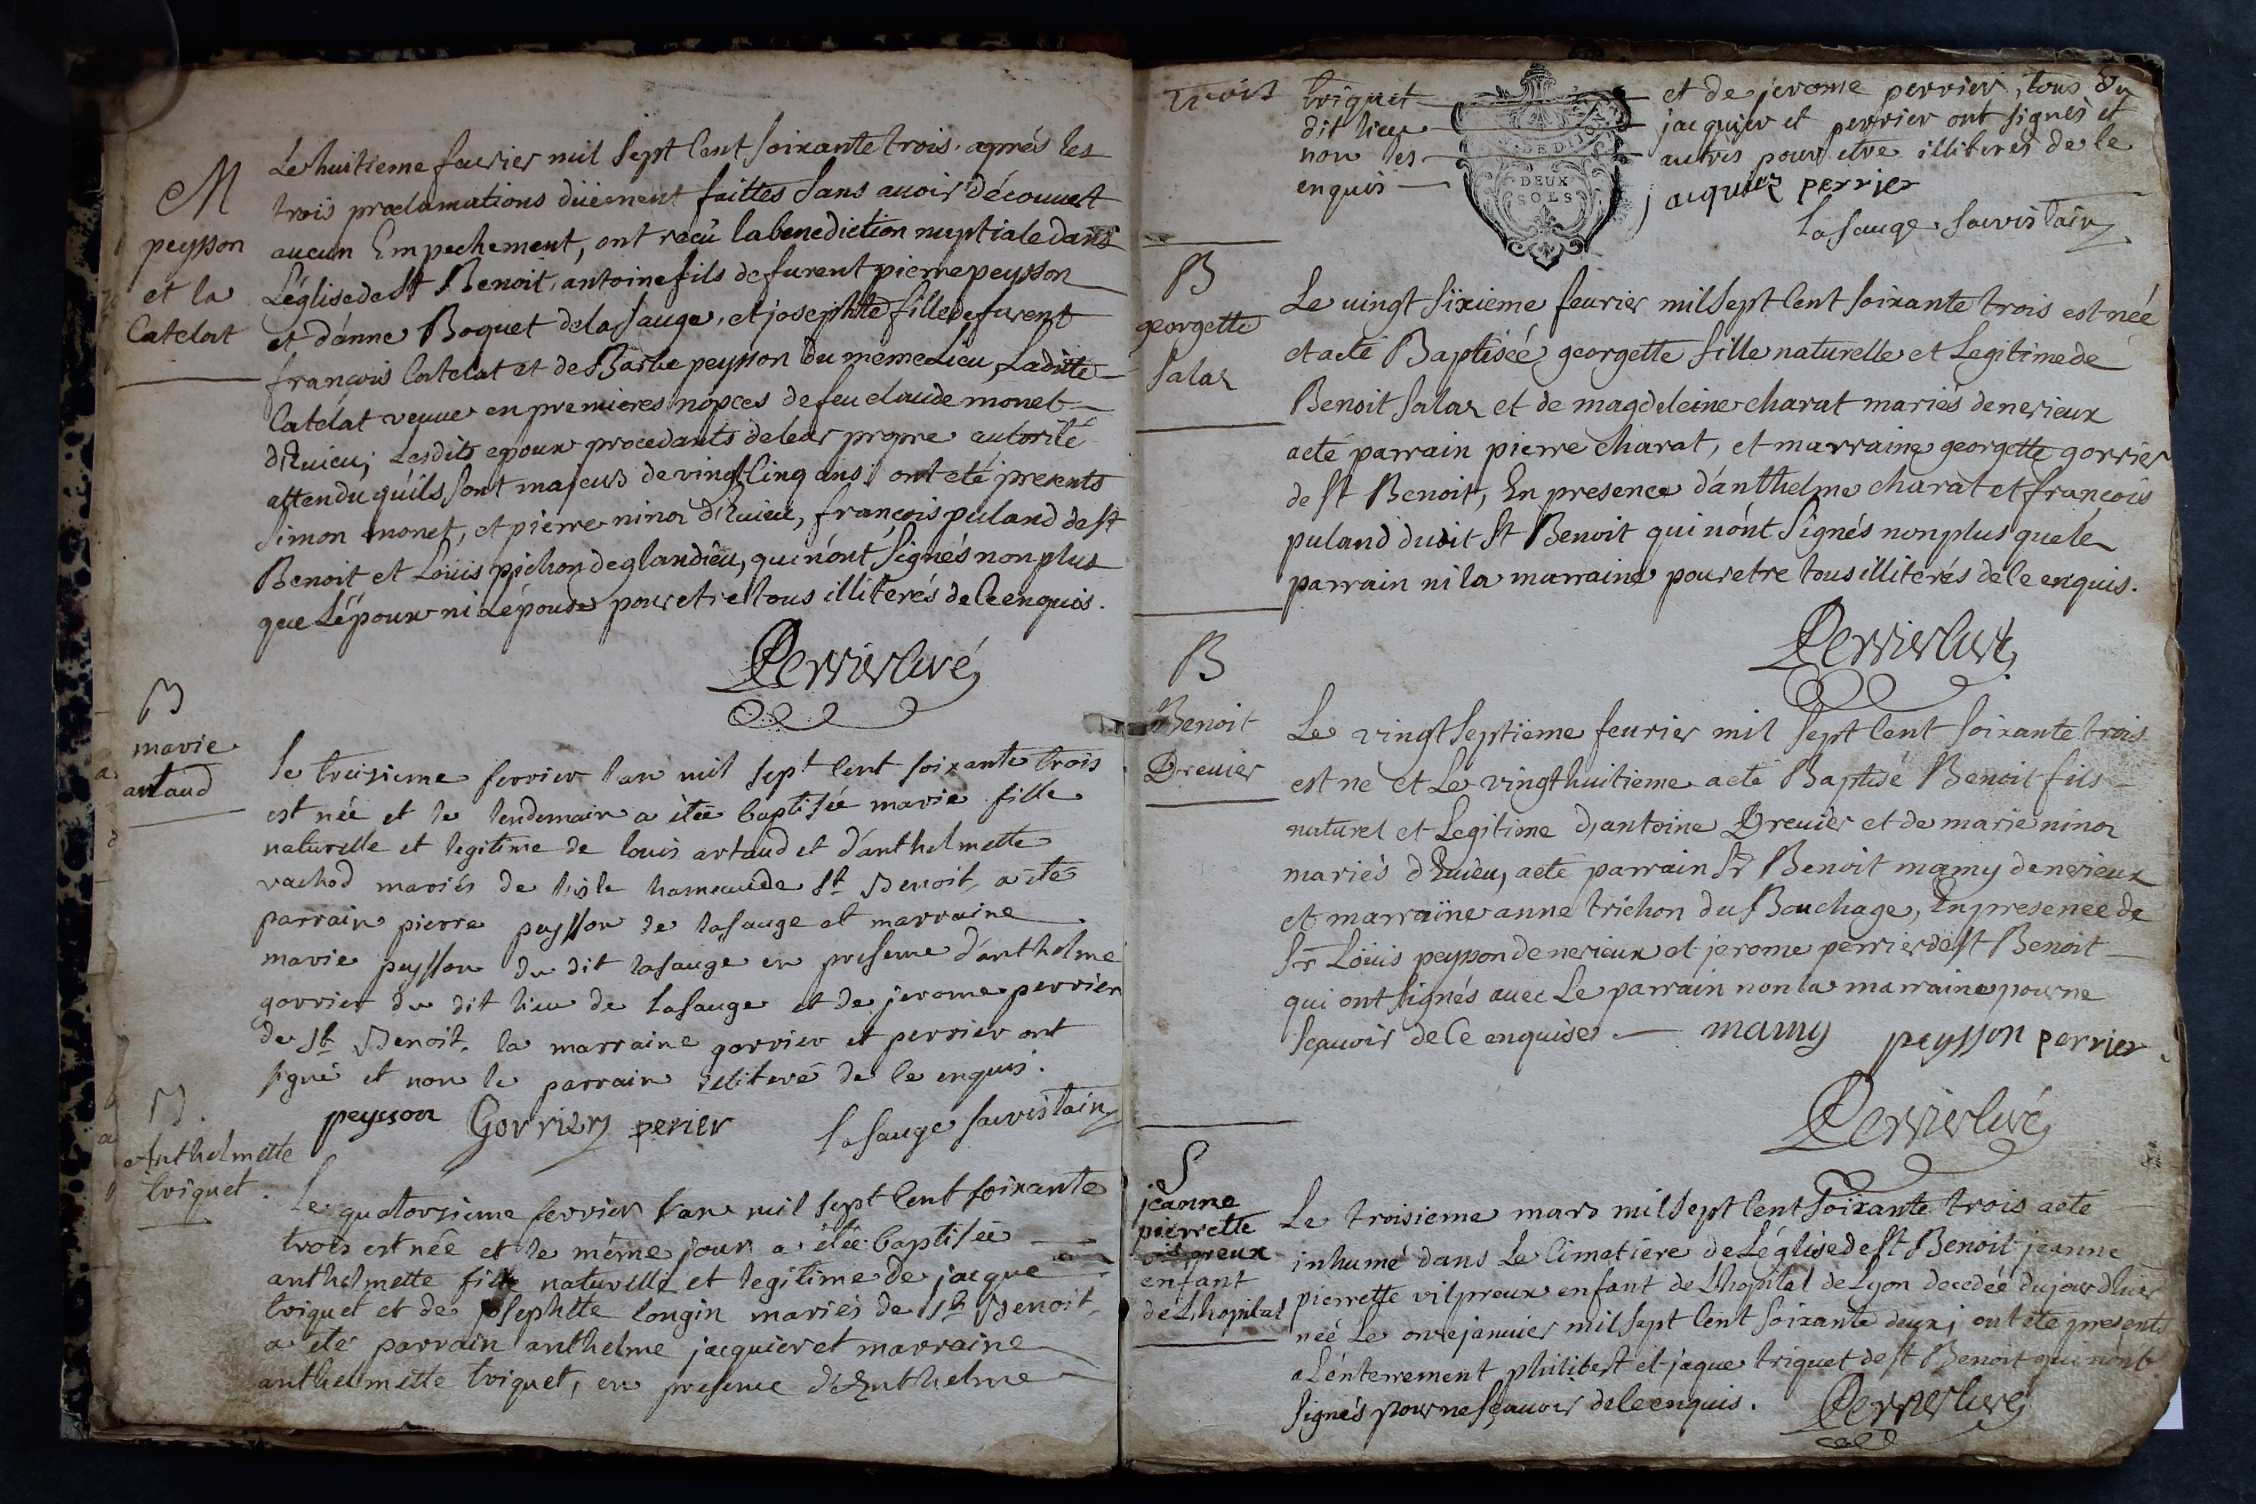 M
peysson
et la
Catelat
Le huitieme feurier mil Sept Cent Soixante trois. aprés les
trois proclamations düement faittes Sans auoir découuert
aucun Empechement, ont reçü la benediction nuptiale dans
L'églisede St Benoit, antoine fils defurent pierre peysson
et d'anne Boquet dela Sauge, et josephte fille defurent
françois Catelat et de Barbe peysson du meme Lieu, Laditte
Catelat veuue en premieres nopces de feu claude monet
d'Euieu; Lesdits epoux procedants deleur propre autorité
attendu quils Sont majeurs de vingt Cinq ans. ont eté presents
Simon monet, et pierre ninoz d'Euieu, françois puland de St
Benoit et Loüis pichon deglandieu, qui n'ont Signés non plus
que L'époux ni Lépouse pour etre tous illiterés de Ce enquis.
Perrier Curé
B
marie
artaud
le treisieme ferrier l'an mil sept Cent soixante trois
est née et le lendemain a étée baptisée marie fille
naturelle et legitime de louis artaud et d'anthelmette
vachod mariés de lisle hameau de St Benoit, a été
parrain pierre peysson de lasauge et marraine
marie peysson du dit lasauge en presence d'anthelme
gorrier du dit lieu de lasauge et de jerome perrier
de St Benoit. la marraine gorrier et perrier ont
signé et non le parrain illiteré de Ce enquis.
peysson Gorrier perier lasauge sacristain
B.
Anthelmette
triquet.
Le quatorsieme ferrier l'an mil sept Cent soixante
trois est née et le même jour a étée baptisée
anthelmette fille naturelle et legitime de jacque
triquet et de josephte longin mariés de St Benoit,
a été parrain anthelme jacquier et marraine
anthelmette triquet, en presence d'Anthelme
trois
triquet et de jerome perrier, tous du
dit lieu jacquier et perrier ont signés et
non les autres pour etre illiterés de Ce
enquis jacquier perrier
DE DIJON
DEUX
SOLS
lasauge sacristain
B
georgette
Salaz
Le uingt Sixieme feurier mil Sept Cent Soixante trois est née
et acté Baptisée georgette fille naturelle et Legitime de
Benoit Salaz et de magdeleine charat mariés denerieux
acté parrain pierre charat, et marraine georgette gorrier
de St Benoit, En presence d'anthelme charat et françois
puland dudit St Benoit qui n'ont Signés non plus que le
parrain ni la marraine pour etre tous illiterés de Ce enquis.
Perrier Curé
B
Benoit
Dreuier
Le vingt Septieme feurier mil Sept Cent Soixante trois
est né et Le vingt huitieme acté Baptisé Benoit fils
naturel et Legitime d'antoine Dreuier et de marie ninoz
mariés d'Euieu, acté parrain Sr Benoit mamy denerieux
et marraine anne trichon du Bouchage, En presence de
Sr Loüis peysson denerieux et jerome perrier de St Benoit
qui ont Signés auec Le parrain non la marraine pour ne
Sçauoir de Ce enquise. mamy peysson perrier
Perrier Curé
S
jeanne
pierrette
vilpreux
enfant
de Lhopital
Le troisieme mars mil Sept Cent Soixante trois acté
inhumé dans Le Cimetiere de L'églisede St Benoit jeanne
pierrette vilpreux enfant de Lhopital de Lyon decedée dujour dhier
née Le onze januier mil Sept Cent Soixante deux; ont eté presents
a L'enterrement philibert et jaque triquet de St Benoit qui n'ont
Signés pour ne Sçauoir de Ce enquis. Perrier Curé